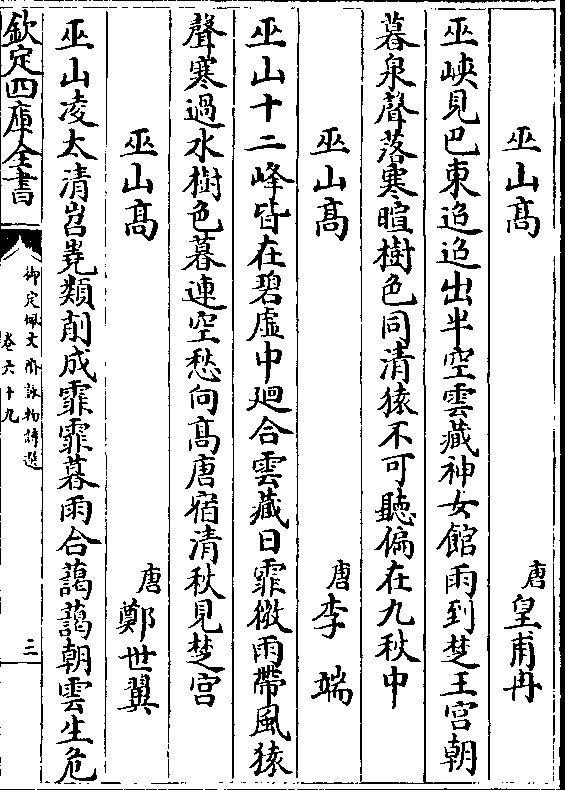 巫山髙　唐皇甫冉
巫峽見巴東迢迢出半空雲藏神女館雨到楚王宫朝
暮泉聲落寒暄樹色同清猿不可聽偏在九秋中
巫山髙　唐李端
巫山十二峰皆在碧虚中廻合雲藏日霏微雨帶風猿
聲寒過水樹色暮連空愁向髙唐宿清秋見楚宫
巫山髙　唐鄭世翼
巫山凌太清岧嶤類削成霏霏暮雨合藹藹朝雲生危
欽定四庫全書
御定佩文齋詠物詩選
卷六十九
三